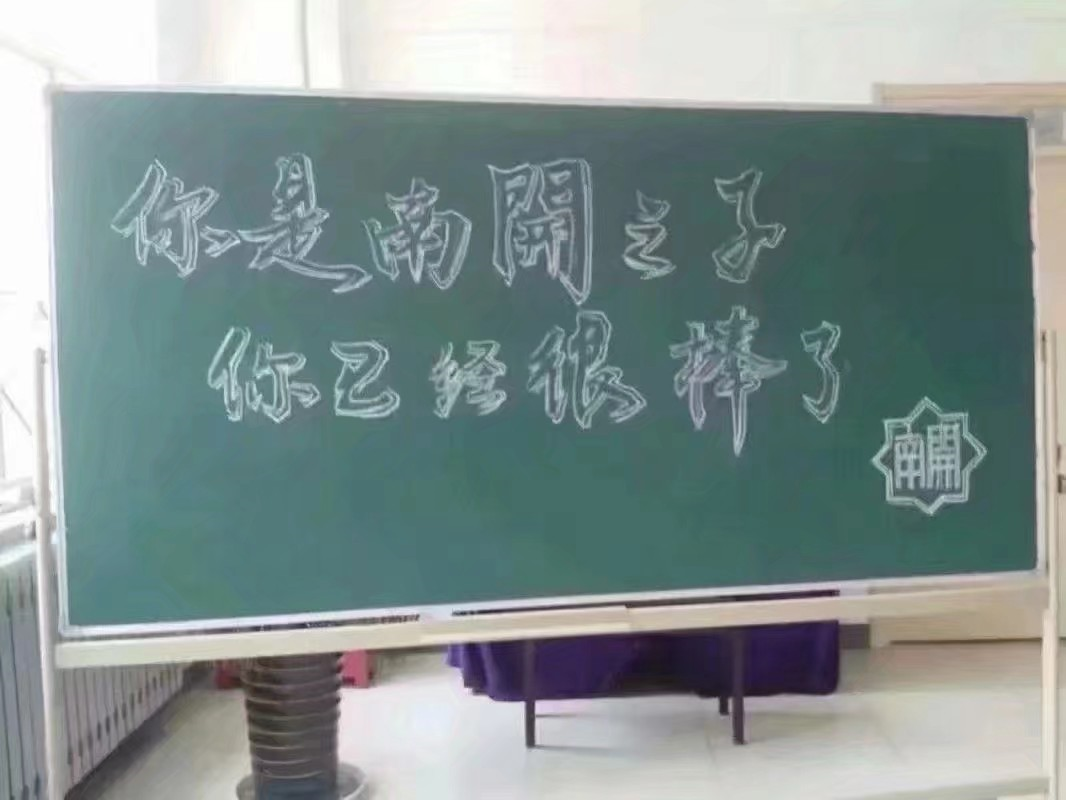 你是南開之子
你已经很棒了
南開